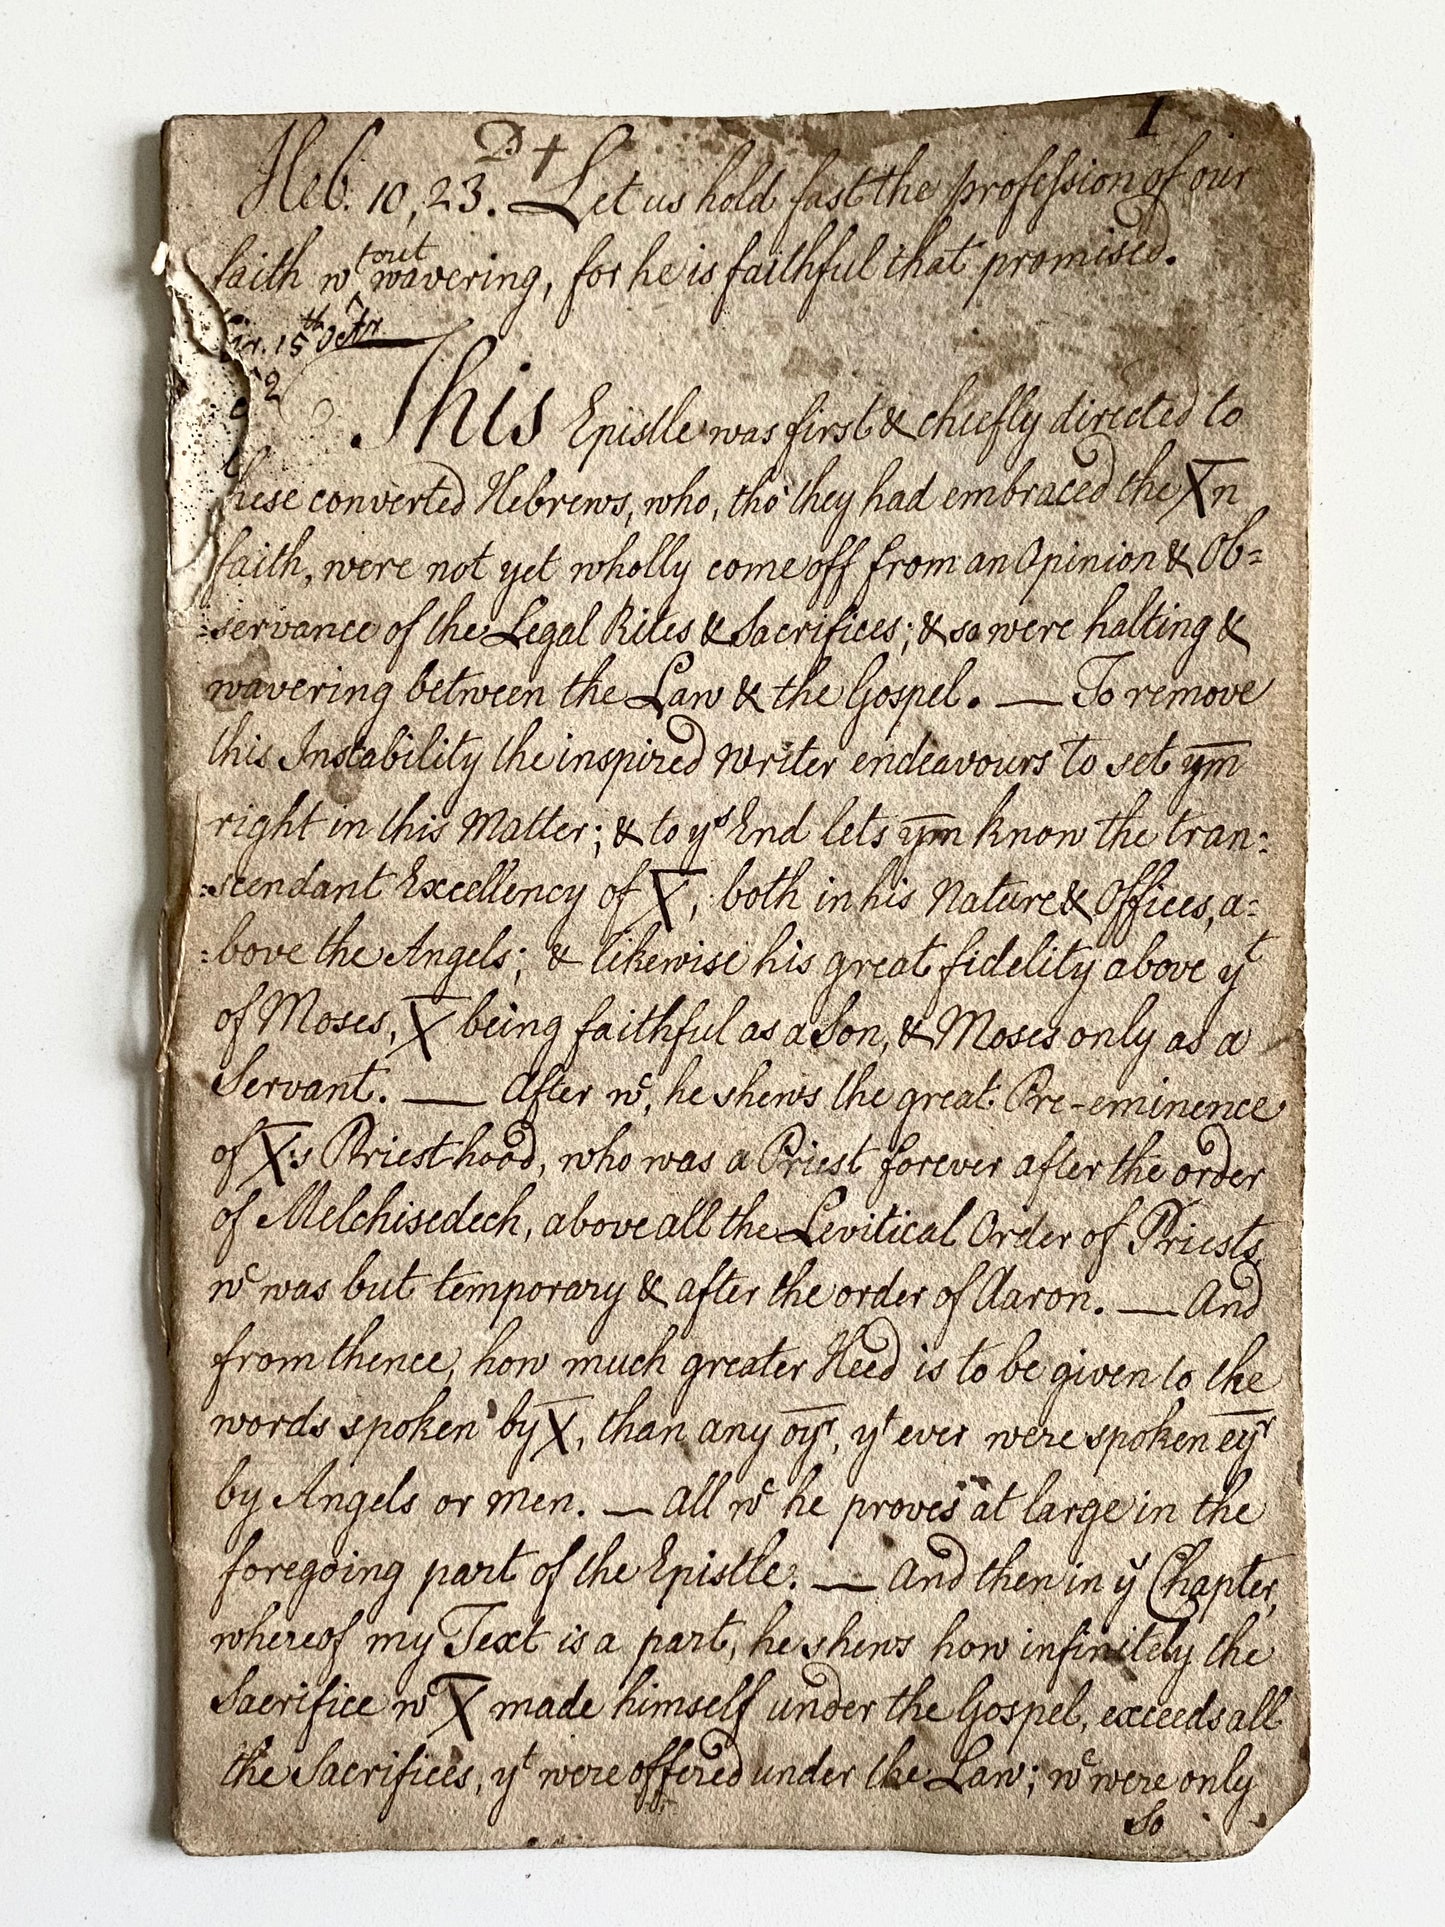 1
D. †
Heb. 10, 23. Let us hold fast the profession of our
faith wt^out wavering, for he is faithful that promised.
15th Octr
This Epistle was first & chiefly directed to
these converted Hebrews, who, tho' they had embraced the X̅n
faith, were not yet wholly come off from an Opinion & Ob=
=servance of the Legal Rites & Sacrifices; & so were halting &
wavering between the Law & the Gospel. — To remove
this Instability the inspired Writer endeavours to set y̅m̅
right in this Matter; & to ys End lets y̅m̅ know the tran=
=scendant Excellency of X̅, both in his Nature & Offices, a=
=bove the Angels; & likewise his great fidelity above yt
of Moses, X̅ being faithful as a Son, & Moses only as a
Servant. — After wc, he shews the great Pre-eminence
of X̅'s Priesthood, who was a Priest forever after the order
of Melchisedech, above all the Levitical Order of Priests,
wc was but temporary & after the order of Aaron. — And
from thence, how much greater Heed is to be given to the
words spoken by X̅, than any o̅y̅r, yt ever were spoken e̅y̅r
by Angels or men. — All wc he proves at large in the
foregoing part of the Epistle. — And then in ys Chapter,
whereof my Text is a part, he shews how infinitely the
Sacrifice wc X̅ made himself under the Gospel, exceeds all
the Sacrifices, yt were offered under the Law; wc were only
So